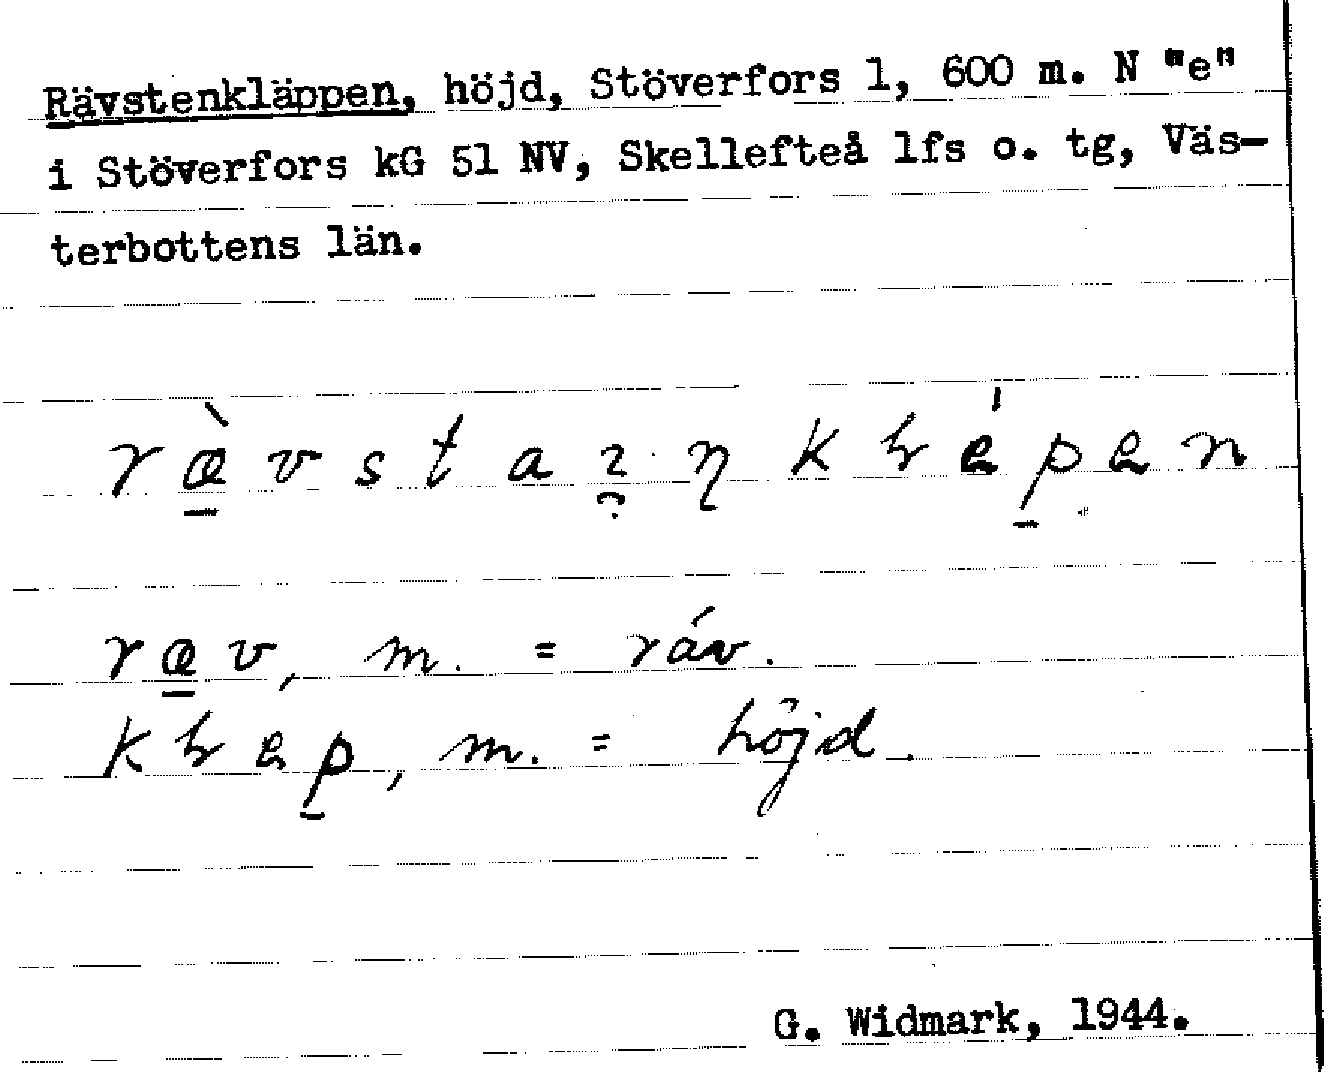 Rävstenkläppen, höjd, Stöverfors 1, 600 m. N "e"
i Stöverfors kG 51 NV, Skellefteå lfs o. tg, Väs-
terbottens län.
ræ̲̀vsta
ræ̲v, m. = räv.
m. = höjd.
G. Widmark, 1944.